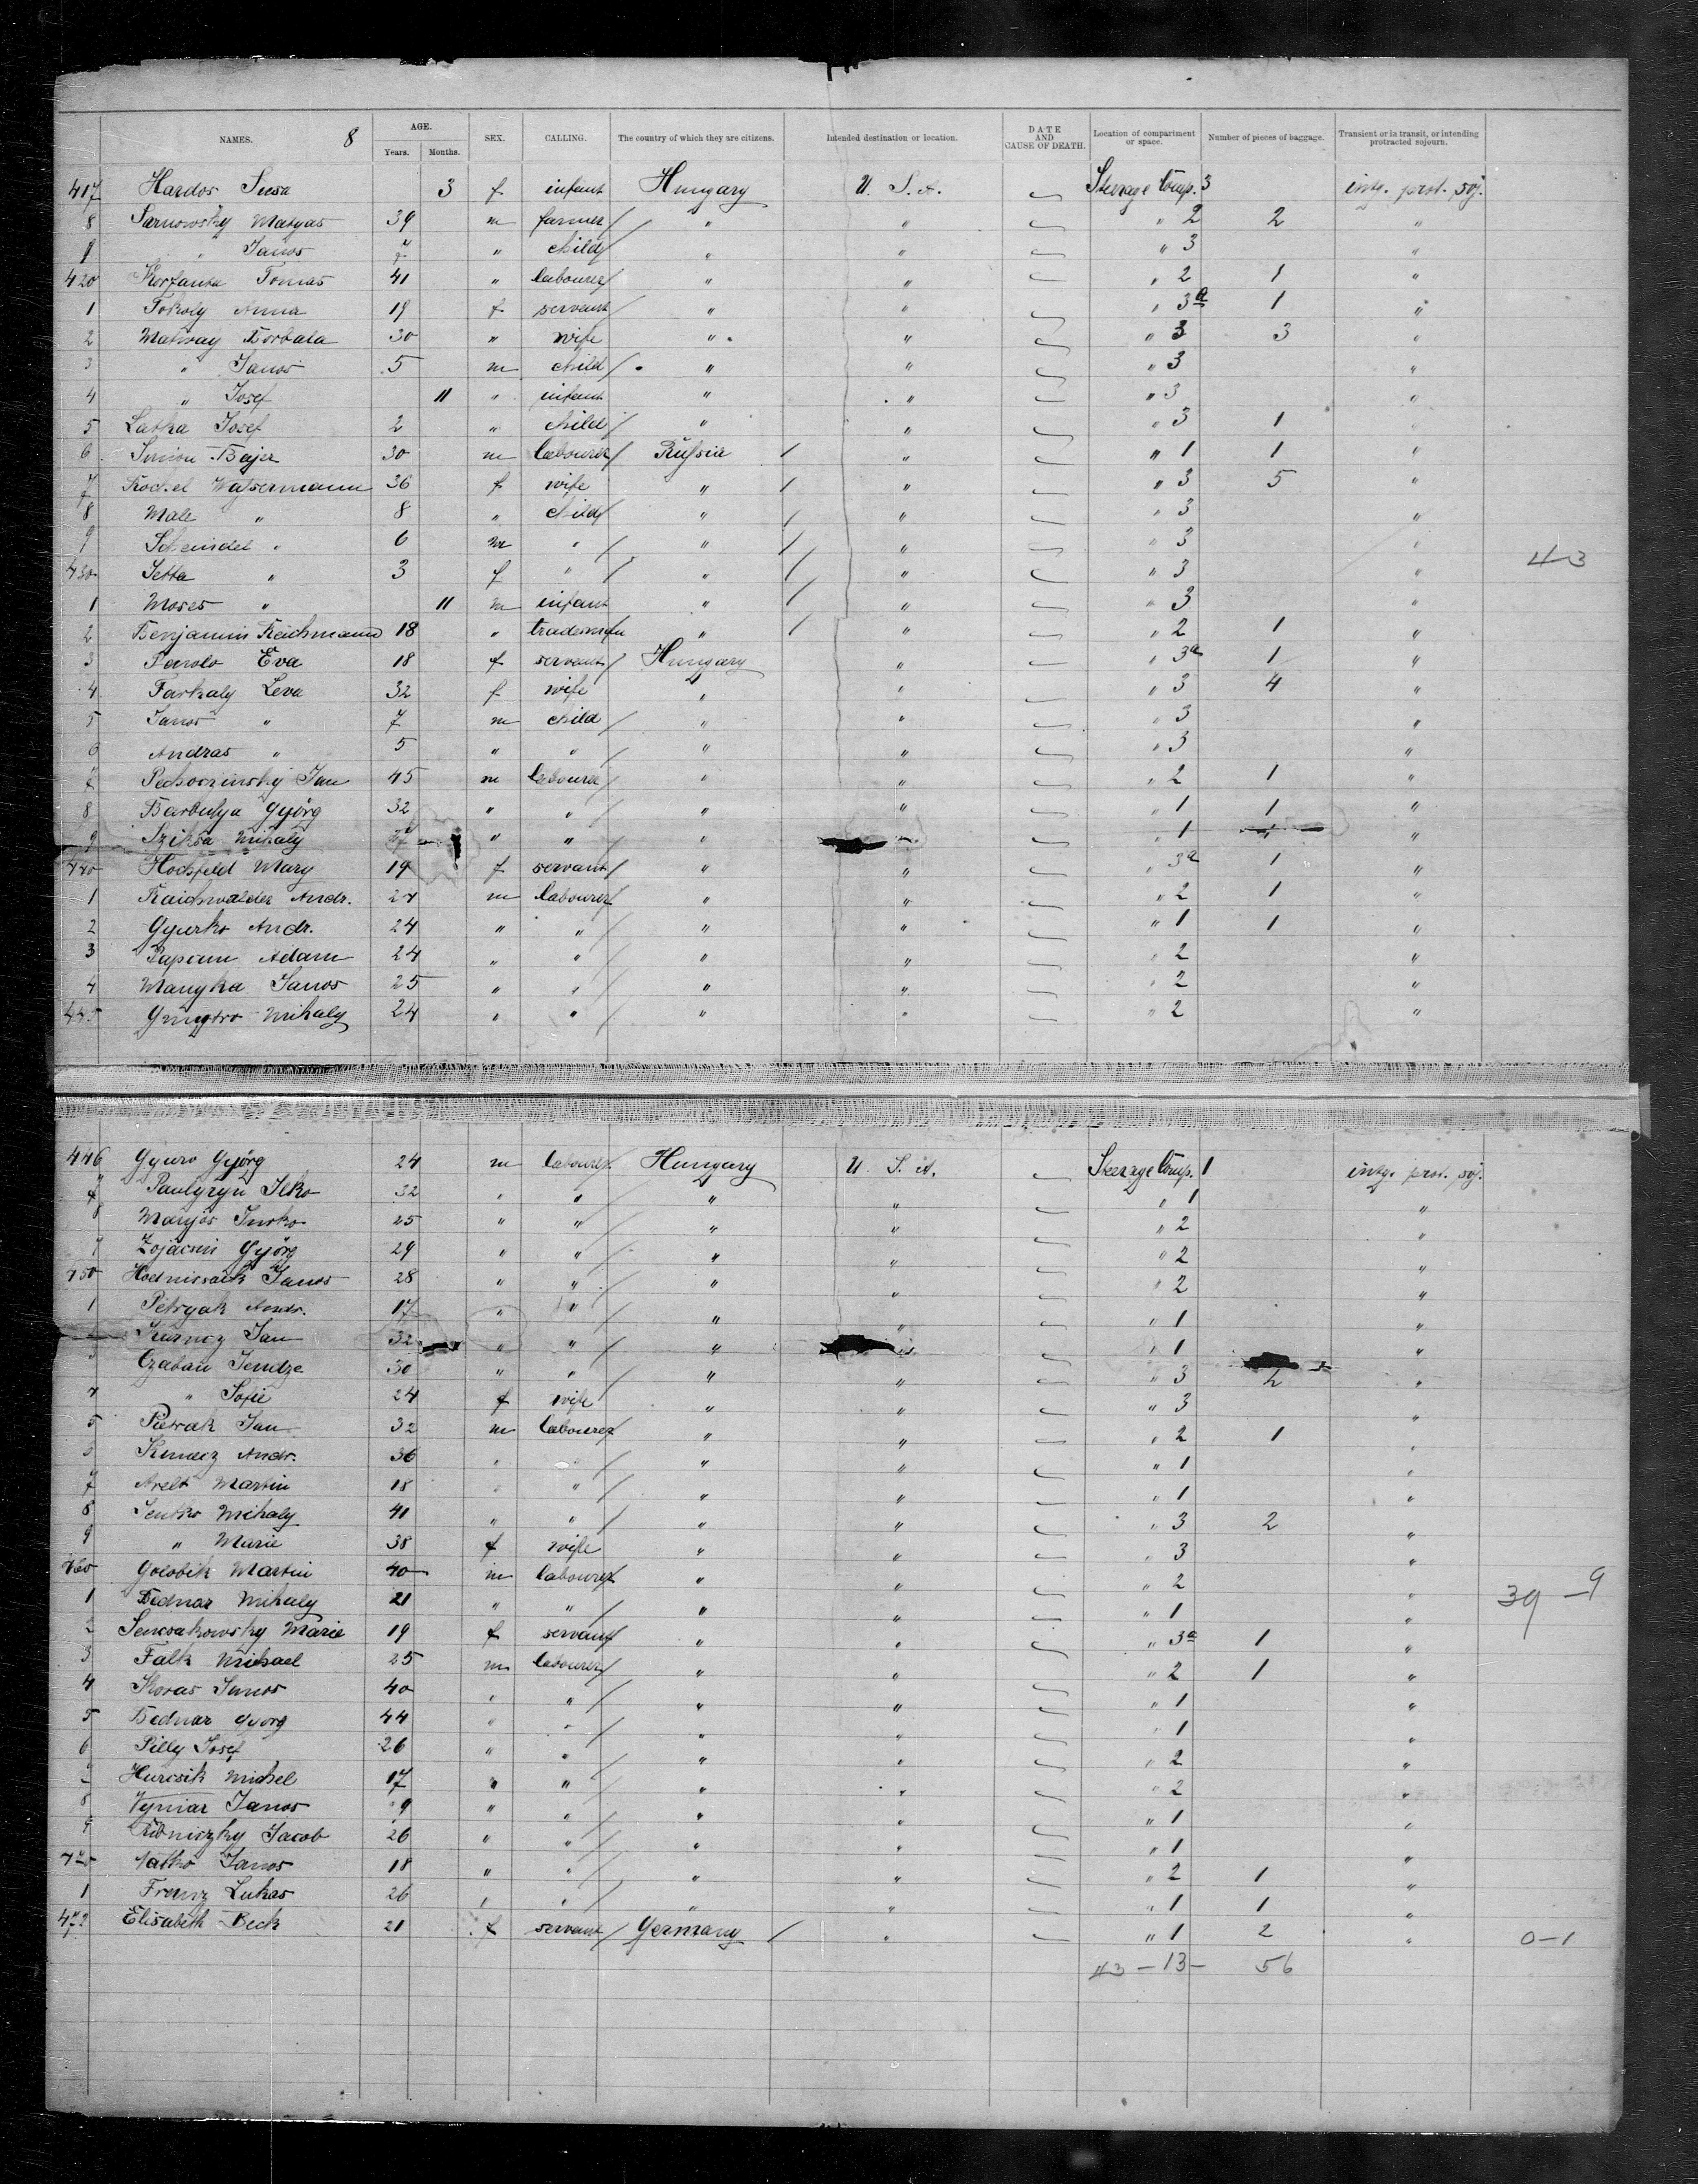 NAMES. 8 AGE. Years. Months. SEX. CALLING. The country of which they are citizens. Intended destination or location. DATE AND CAUSE OF DEATH. Location of compartment or space. Number of pieces of baggage. Transient or in transit, or intending protracted sojourn.
417 Hardos Susa 3 f infant Hungary U. S. A. Steerage Comp. 3 intg. prot. soj.
8 Sarnowsky Matyas 39 m farmer " " " 2 2 "
9 " Janos 7 " child " " " 3 "
420 Korfanta Tomas 41 " labourer " " " 2 1 "
1 Tokoly Anna 19 f servant " " " 3a 1 "
2 Matway Borbala 30 " wife " " " 3 3 "
3 " Janos 5 m child " " " 3 "
4 " Josef 11 " infant " " " 3 "
5 Latka Josef 2 " child " " " 3 1 "
6 Simon Bajer 30 m labourer Russia " " 1 1 "
7 Rochel Wassermann 36 f wife " " " 3 5 "
8 Male " 8 " child " " " 3 "
9 Scheindel " 6 m " " " " 3 " 43
430 Jetta " 3 f " " " " 3 "
1 Moses " 11 m infant " " " 3 "
2 Benjamin Reichmann 18 " tradesman " " " 2 1 "
3 Eva 18 f servant Hungary " " 3a 1 "
4 Farkaly Leva 32 f wife " " " 3 4 "
5 Janos " 7 m child " " " 3 "
6 Andras " 5 " " " " " 3 "
7 Pechoczinsky Jan 45 m labourer " " " 2 1 "
8 Barbulya Györg 32 " " " " " 1 1 "
9 Sziksa Mihaly " " " " 1 "
440 Hochfeld Mary 19 f servant " " " 3a 1 "
1 Raichwalder Andr. 24 m labourer " " " 2 1 "
2 Gyurko Andr. 24 " " " " " 1 1 "
3 Adam 24 " " " " " 2 "
4 Manyka Janos 25 " " " " " 2 "
445 Mihaly 24 " " " " " 2 "
446 Gyuro Györg 24 m labourer Hungary U. S. A. Steerage Comp. 1 intg. prot. soj.
7 Ilko 32 " " " " " 1 "
8 25 " " " " " 2 "
9 Zojacsin Györg 29 " " " " " 2 "
450 Janos 28 " " " " " 2 "
1 Petryak Andr. 17 " " " " " 1 "
Jan 32 " " " " 1 "
Czaban Jendze 30 " " " " " 3 2 "
4 " Sofie 24 f wife " " " 3 "
5 Pietrak Jan 32 m labourer " " " 2 1 "
6 Andr. 36 " " " " " 1 "
7 Arelt Martin 18 " " " " " 1 "
8 Senko Mihaly 41 " " " " " 3 2 "
9 " Marie 38 f wife " " " 3 "
460 Golobik Martin 40 m labourer " " " 2 "
1 Bednar Mihaly 21 " " " " " 1 " 39 – 9
2 Sencsakowsky Marie 19 f servant " " " 3a 1 "
3 Falk Michael 25 m labourer " " " 2 1 "
4 Koras Janos 40 " " " " " 1 "
5 Bednar Györg 44 " " " " " 1 "
6 Pilly Josef 26 " " " " " 2 "
7 Hurcsik Michel 17 " " " " " 2 "
8 Janos " " " " " 1 "
9 Ribniczky Jacob 26 " " " " " 1 "
470 Natko Janos 18 " " " " " 2 1 "
1 Frenz Lukas 26 " " " " " 1 1 "
472 Elisabeth Beck 21 f servant Germany " " 1 2 " 0 – 1
43 – 13 – 56